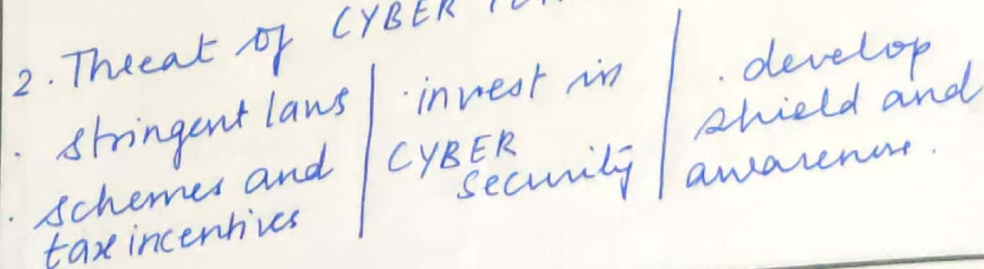 2. Threat of CYBER
· stringent laws
· schemes and
tax incentives
· invest in
CYBER
security
· develop
shield and
awareness.